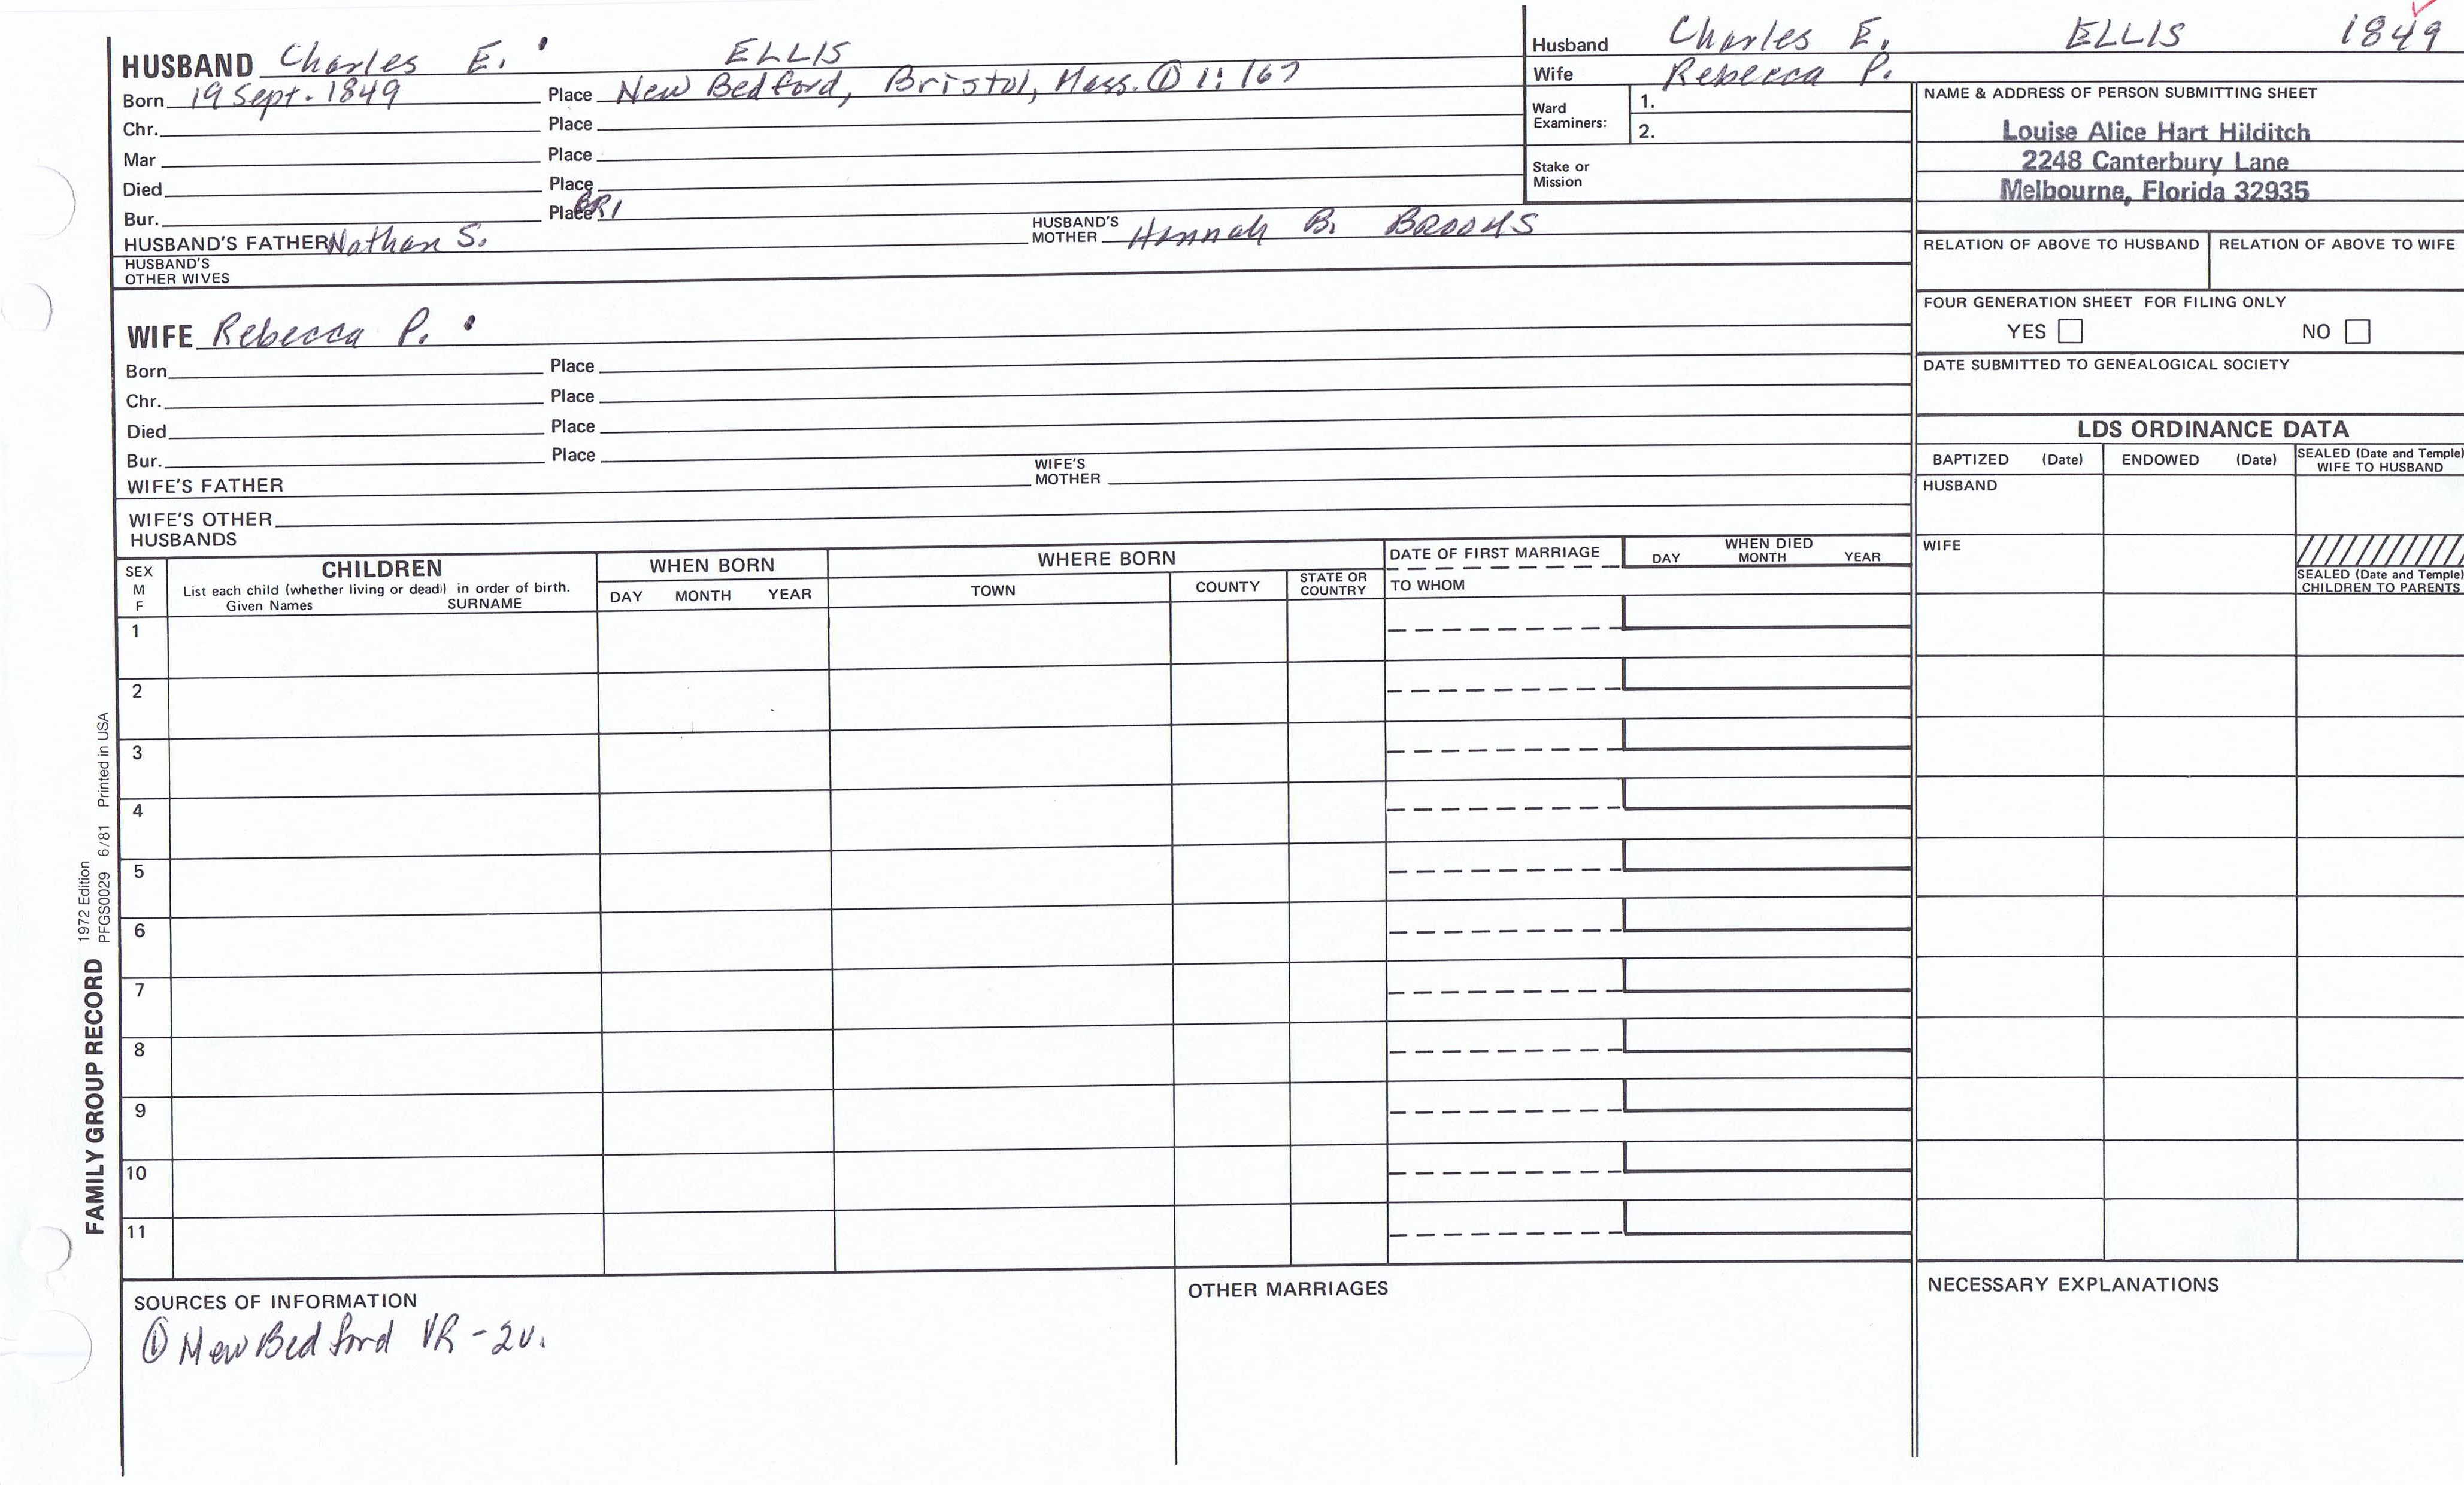 HUSBAND Charles E. ELLIS
Born 19 Sept. 1849 Place New Bedford, Bristol, Mass. ① 1: 167
Chr. Place
Mar Place
Died Place
Bur. Place
HUSBAND'S FATHER Nathan S. HUSBAND'S MOTHER Hannah B. BROOKS
HUSBAND'S
OTHER WIVES
WIFE Rebecca P.
Born Place
Chr. Place
Died Place
Bur. Place
WIFE'S FATHER WIFE'S MOTHER
WIFE'S OTHER
HUSBANDS
Husband Charles E. ELLIS 1849
Wife Rebecca P.
Ward
Examiners:
1.
2.
Stake or
Mission
NAME & ADDRESS OF PERSON SUBMITTING SHEET
Louise Alice Hart Hilditch
2248 Canterbury Lane
Melbourne, Florida 32935
RELATION OF ABOVE TO HUSBAND RELATION OF ABOVE TO WIFE
FOUR GENERATION SHEET FOR FILING ONLY
YES NO
DATE SUBMITTED TO GENEALOGICAL SOCIETY
LDS ORDINANCE DATA
BAPTIZED (Date) ENDOWED (Date) SEALED (Date and Temple)
WIFE TO HUSBAND
HUSBAND
WIFE
SEALED (Date and Temple)
CHILDREN TO PARENTS
SEX
M
F
CHILDREN
List each child (whether living or dead) in order of birth.
Given Names SURNAME
WHEN BORN
DAY MONTH YEAR
WHERE BORN
TOWN COUNTY STATE OR
COUNTRY
DATE OF FIRST MARRIAGE
TO WHOM
WHEN DIED
DAY MONTH YEAR
1
2
3
4
5
6
7
8
9
10
11
SOURCES OF INFORMATION
① New Bedford VR - 2v.
OTHER MARRIAGES
NECESSARY EXPLANATIONS
FAMILY GROUP RECORD 1972 Edition
PFGS0029 6/81 Printed in USA